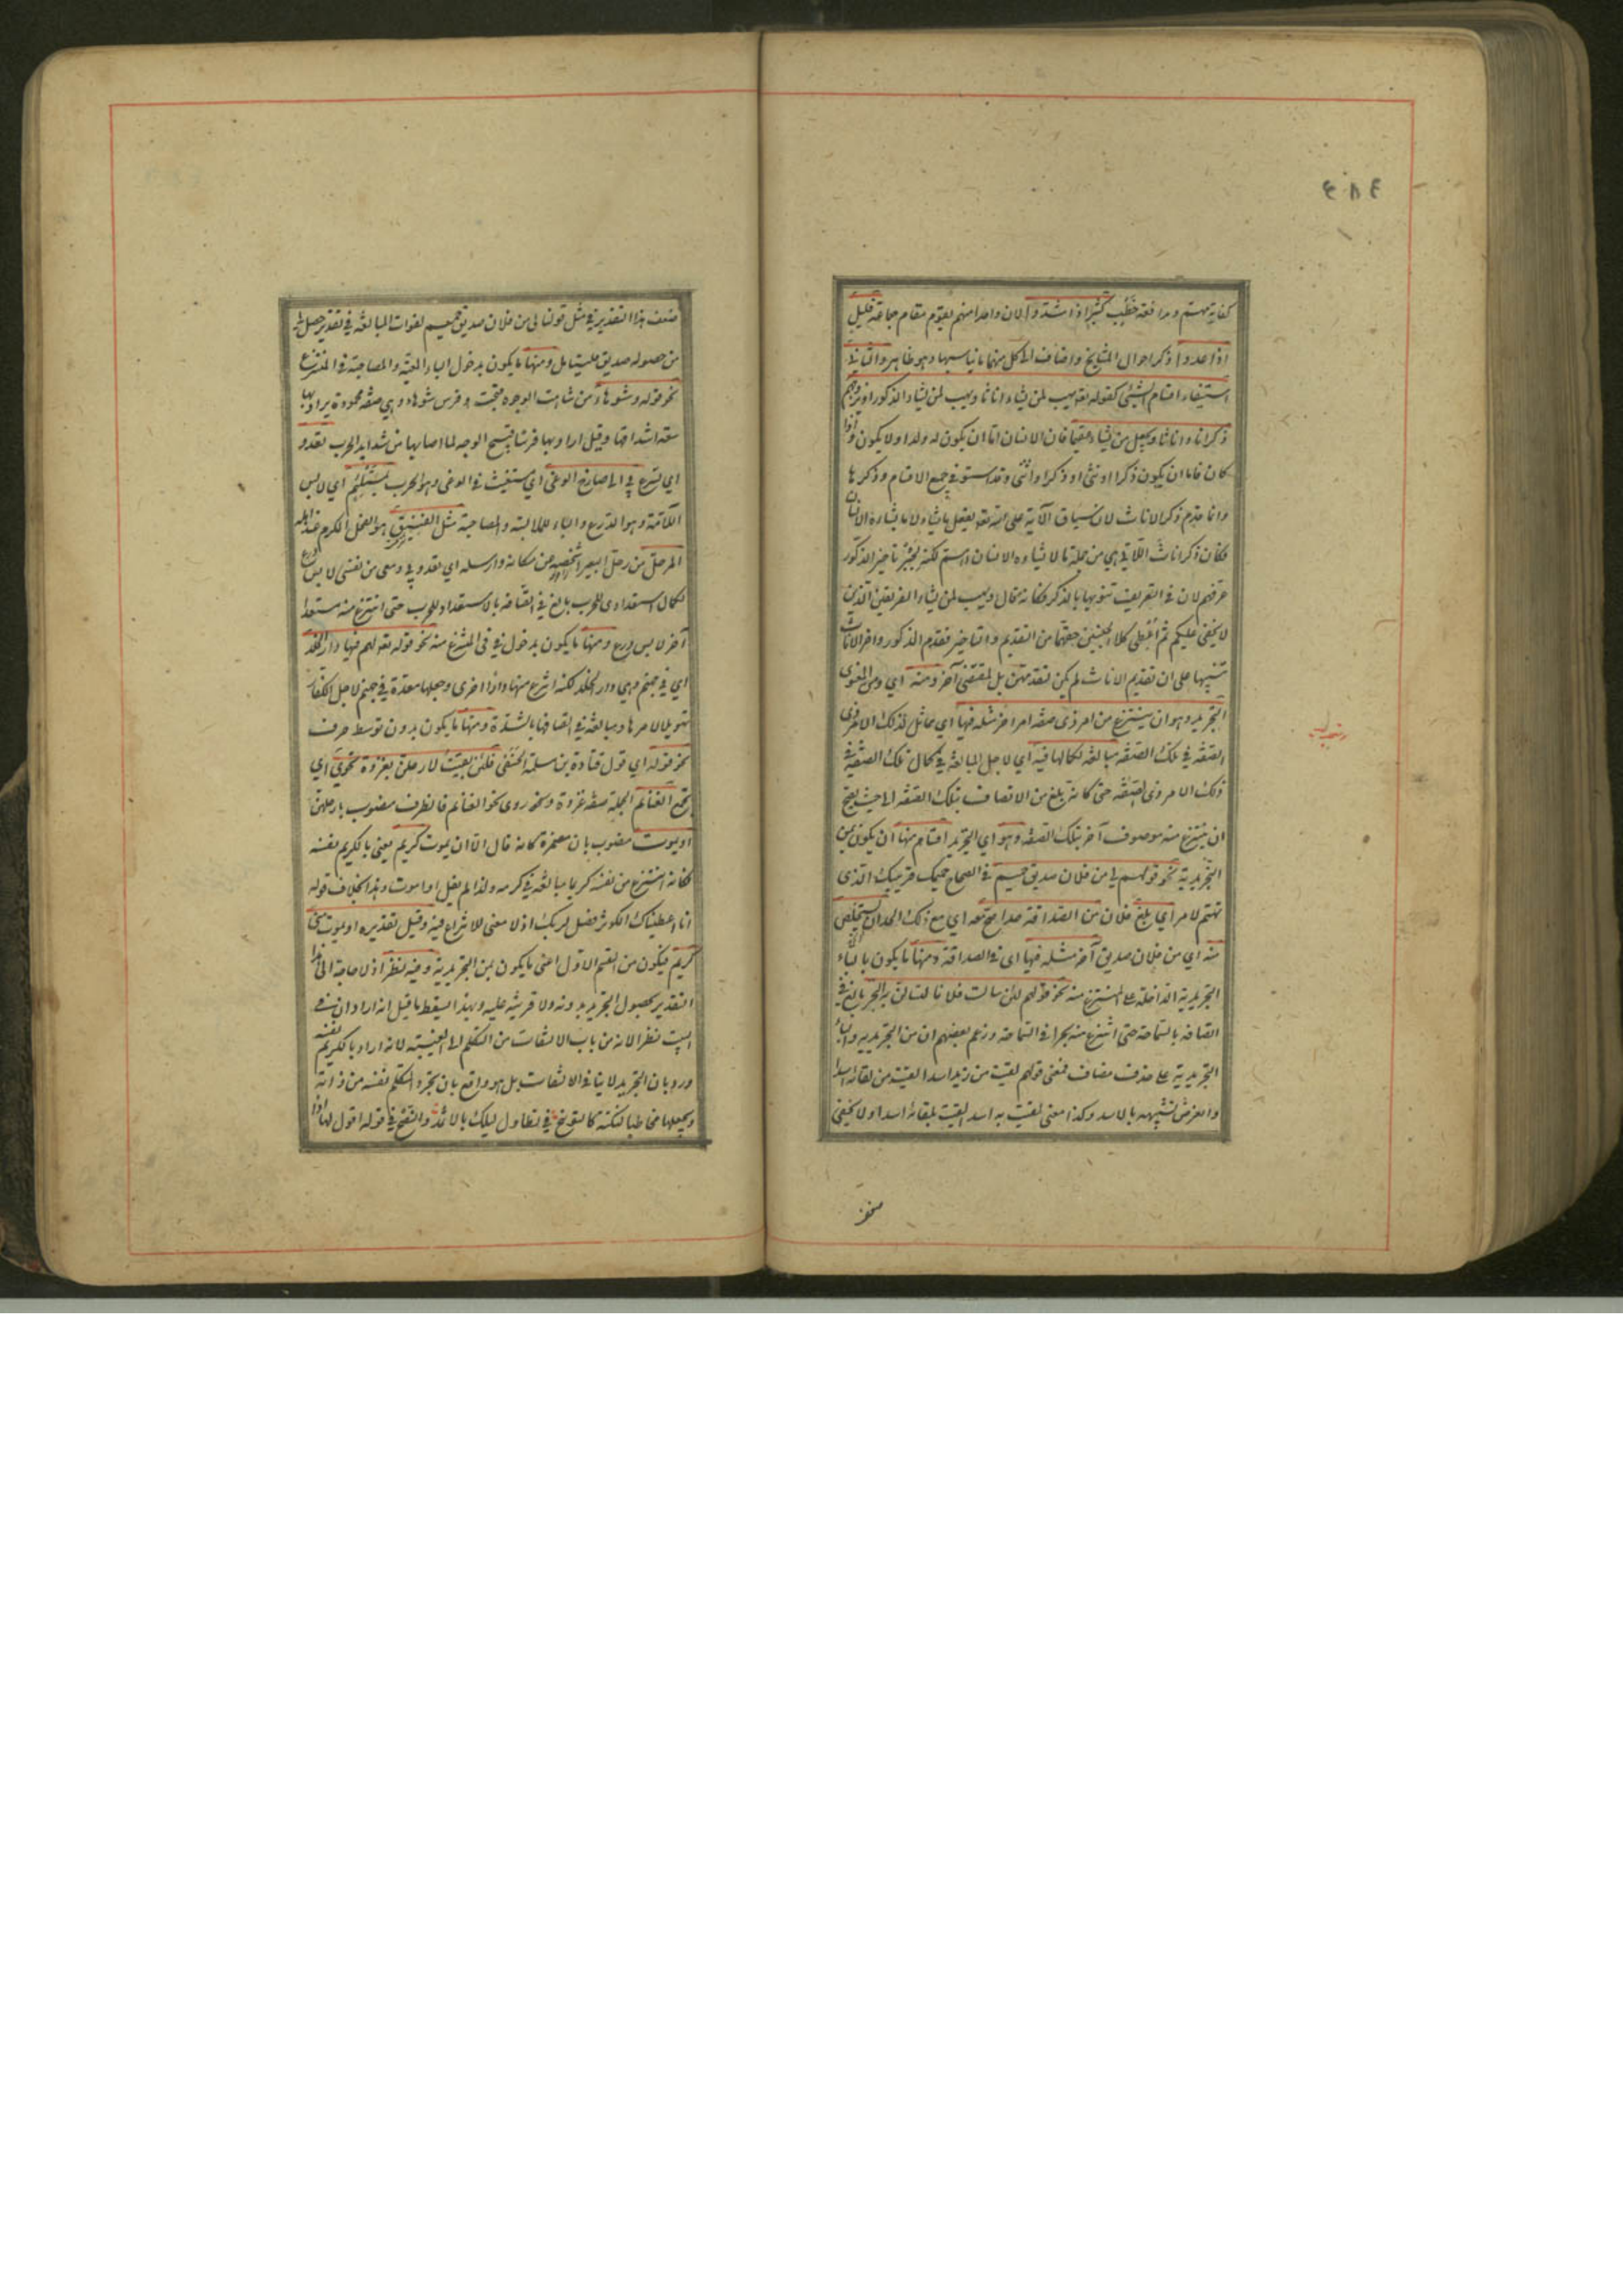 كفاية مهتم ومدافعة خطب كثير اذا شدوا لان واحدا منهم يقوم مقام جماعة قليل
اذا عدوا ذكر احوال المشايخ واضاف الى كل منها ما يناسبها وهو ظاهر والثاني
استيفاء اقسام الشئ كقوله تعه يهب لمن يشاء اناثا ويهب لمن يشاء الذكور او يزوجهم
ذكرانا واناثا ويجعل من يشاء عقيما فان الانسان اما ان يكون له ولد او لا يكون واذا
كان فاما ان يكون ذكرا او انثى او ذكرا وانثى وقد استوفى جميع الاقسام وذكرها
وانما قدم ذكر الاناث لان سياق الآية على انه تعه يفعل ما يشاء لا ما يشاءه الانسان
فكان ذكر اناث اللاتي هي من جملة ما لا يشاءه الانسان اهم لكنه لجبر تاخير الذكور
عرفهم لان في التعريف تنويها بالذكر فكانه قال ويهب لمن يشاء الفريقين الذين
لا يخفى عليكم ثم اعطى كلا الجنسين حقهما من التقديم والتاخير فقدم الذكور واخر الاناث
تنبيها على ان تقديم الاناث لم يكن لتقدمهن بل لمقتضى آخر ومنه اي ومن المعنوي
التجريد وهو ان ينتزع من امر ذي صفة امر اخر مثله فيها اي مماثل لذلك الامر ذي
الصفة في تلك الصفة مبالغة لكمالها فيه اي لاجل المبالغة في كمال تلك الصفة في
ذلك الامر ذي الصفة حتى كانه بلغ من الاتصاف بتلك الصفة الى حيث يصح
ان ينتزع منه موصوف آخر بتلك الصفة وهو اي التجريد اقسام منها ان يكون بمن
التجريدية نحو قولهم لي من فلان صديق حميم في الصحاح حميمك قريبك الذي
تهتم لامره اي بلغ فلان من الصداقة حدا صح معه اي مع ذلك الحد ان يستخلص
منه اي من فلان صديق آخر مثله فيها اي في الصداقة ومنها ما يكون بالباء
التجريدية الداخلة على المنتزع منه نحو قولهم لئن سالت فلانا لتسالن به البحر بالغ في
اتصافه بالسماحة حتى انتزع منه بحرا في السماحة وزعم بعضهم ان من التجريدية والباء
التجريدية على حذف مضاف فمعنى قولهم لقيت من زيد اسدا لقيت من لقائه اسدا
والغرض تشبيهه بالاسد وكذا معنى لقيت به اسدا لقيت بلقائه اسدا ولا يخفى
ضعف هذا التقدير في مثل قولنا لي من فلان صديق حميم لفوات المبالغة في تقدير حصل لي
من حصوله صديق فليتامل ومنها ما يكون بدخول الباء المعية والمصاحبة في المنتزع
نحو قوله وشوهاء من شاهت الوجوه قبحت وفرس شوهاء وهي صفة محمودة يراد بها
سعة اشداقها وقيل اراد بها فرسا قبيح الوجه لما اصابها من شدايد الحرب تعدو
اي تسرع بي الى صارخ الوغى اي مستغيث في الوغى وهو الحرب بمستلئم اي لابس
اللأمة وهو الدرع والباء للملابسة والمصاحبة مثل الفنيق هو الفحل المكرم عند اهله
المرحل من رحل البعير اشخصه من مكانه وارسله اي تعدو بي ومعي من نفسي لابس درع
لكمال استعدادي للحرب بالغ في اتصافه بالاستعداد للحرب حتى انتزع منه مستعدا
آخر لابس درع ومنها ما يكون بدخول في في المنتزع منه نحو قوله تعه لهم فيها دار الخلد
اي في جهنم وهي دار الخلد لكنه انتزع منها دارا اخرى وجعلها معدة في جهنم لاجل الكفار
تهويلا لامرها ومبالغة في اتصافها بالشدة ومنها ما يكون بدون توسط حرف
نحو قوله اي قول قتادة بن مسلمة الحنفي فلئن بقيت لارحلن بغزوة تحوي اي
تجمع الغنائم الجملة صفة غزوة وروى نحو الغنائم فالظرف منصوب بارحلن
او يموت منصوب بان مضمرة كانه قال الا ان يموت كريم يعني بالكريم نفسه
فكانه انتزع من نفسه كريما مبالغة في كرمه ولذا لم يقل او اموت وهذا بخلاف قوله
انا اعطيناك الكوثر فصل لربك اذ لا معنى للانتزاع فيه وقيل تقديره او يموت مني
كريم فيكون من القسم الاول اعني ما يكون بمن التجريدية وفيه نظر اذ لا حاجة الى هذا
التقدير لحصول التجريد بدونه ولا قرينة عليه وبهذا يسقط ما قيل انه اراد ان في
البيت نظرا لانه من باب الالتفات من التكلم الى الغيبة لانه اراد بالكريم نفسه
ورد بان التجريد لا ينافي الالتفات بل هو واقع بان يجرد المتكلم نفسه من ذاته
ويجعلها مخاطبا لنكتة كالتوبيخ في تطاول ليلك بالاثمد والنصح في قوله اقول لها اذا